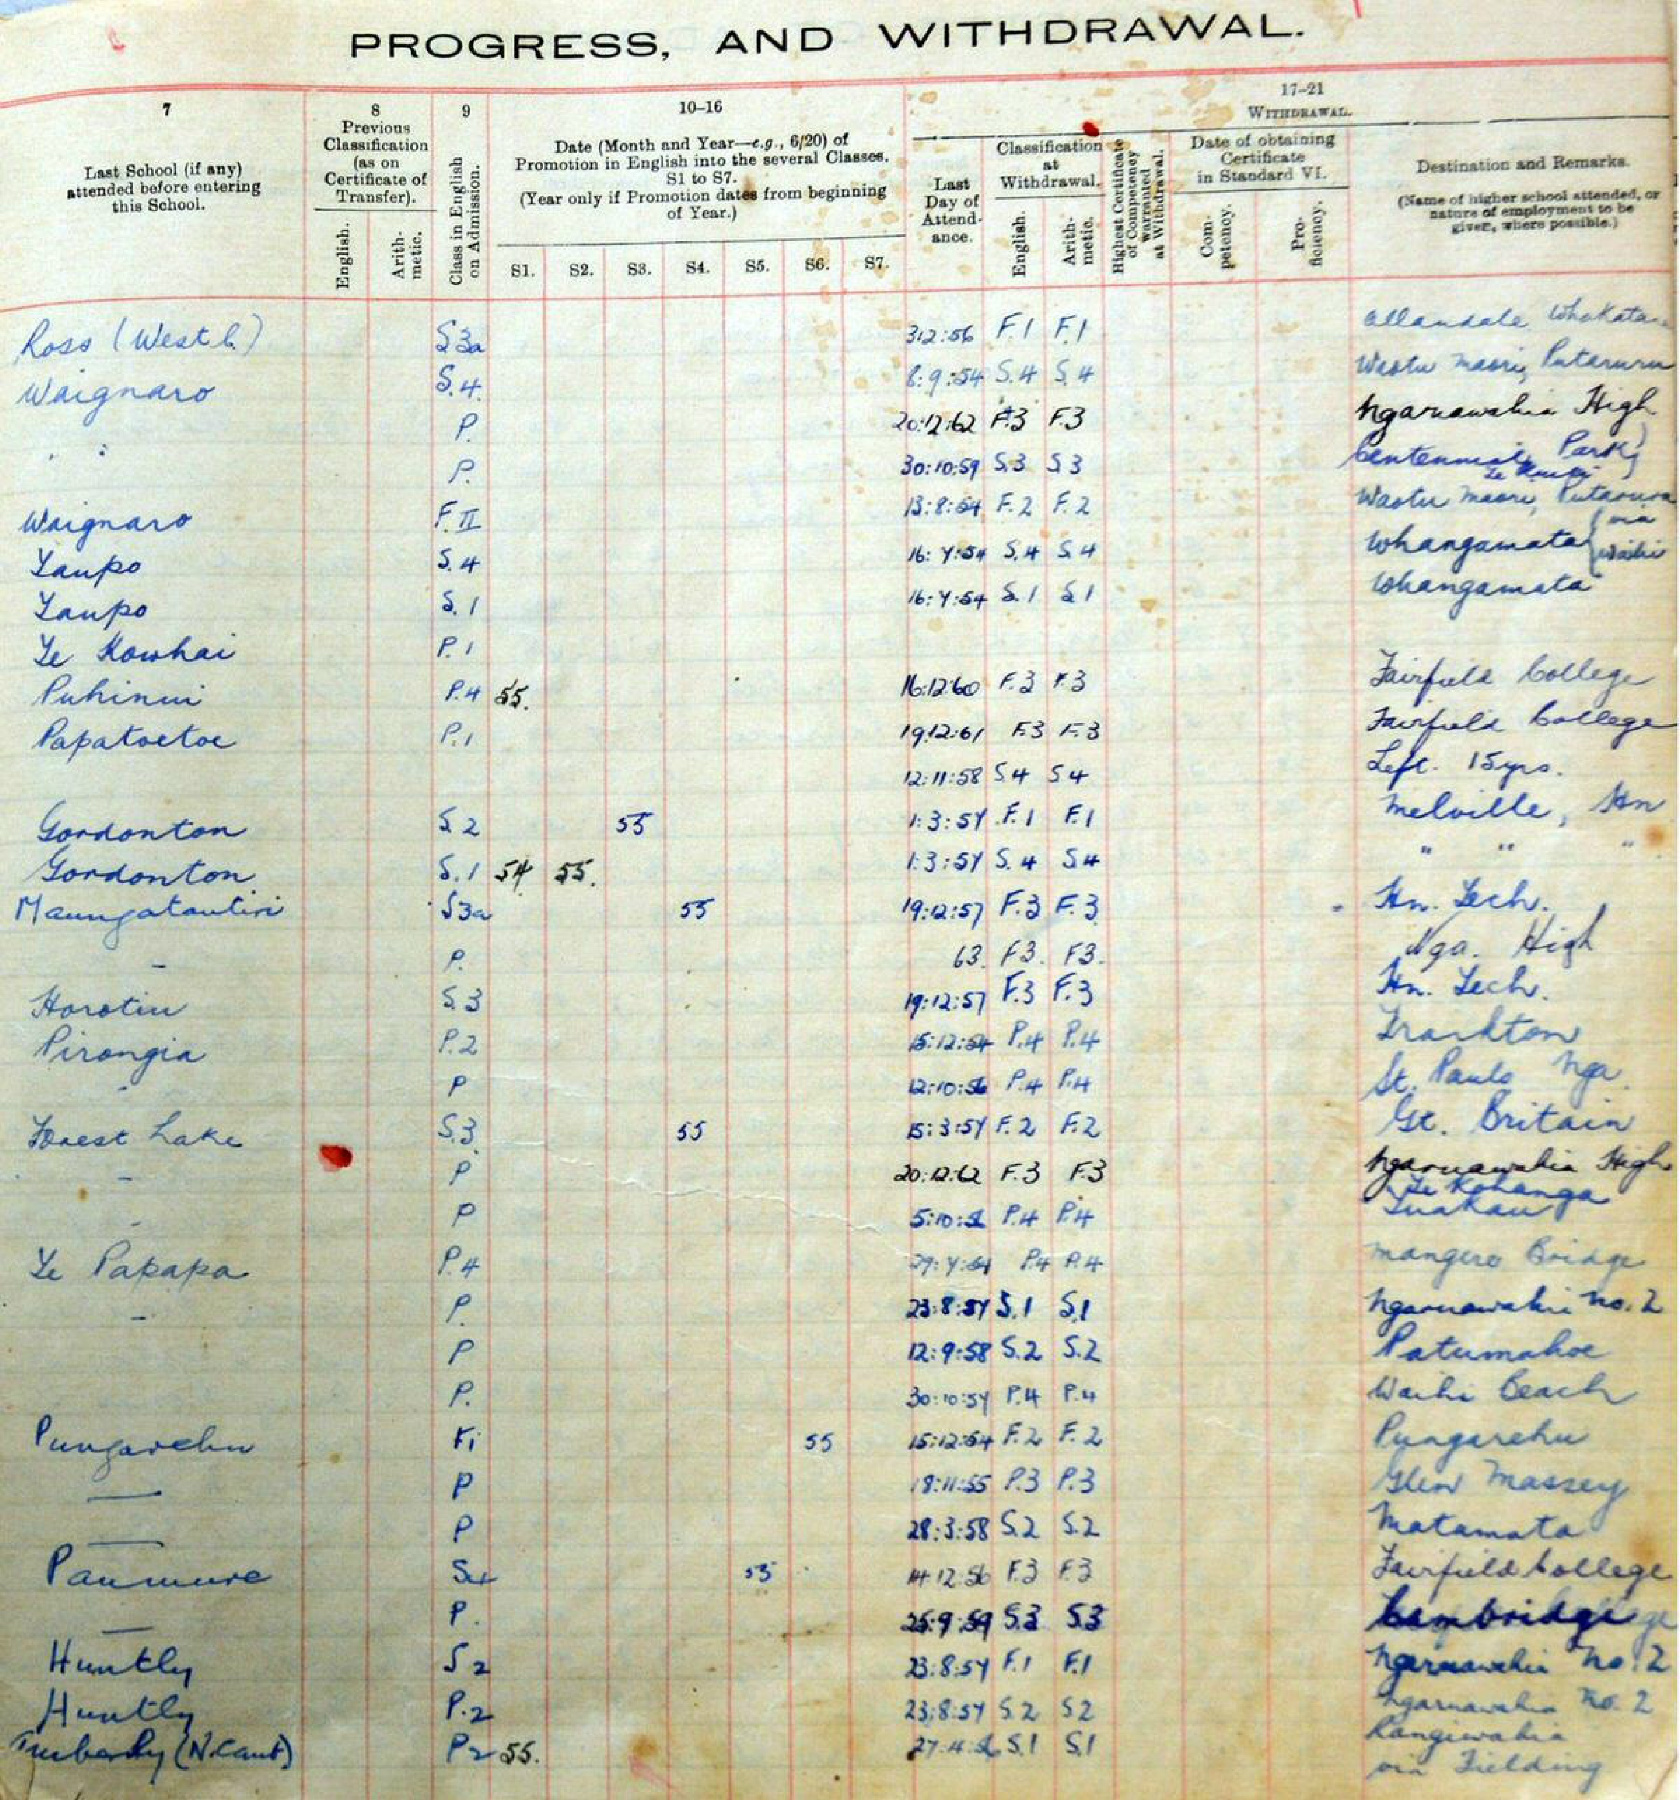 PROGRESS, AND WITHDRAWAL.
7
Last School (if any)
attended before entering
this School.
8
Previous
Classification
(as on
Certificate of
Transfer).
English.
Arith-
metic.
9
Class in English
on Admission.
10-16
Date (Month and Year—e.g., 6/20) of
Promotion in English into the several Classes.
S1 to S7.
(Year only if Promotion dates from beginning
of Year.)
S1. S2. S3. S4. S5. S6. S7.
17-21
WITHDRAWAL.
Last
Day of
Attend-
ance.
Classification
at
Withdrawal.
English.
Arith-
metic.
Highest Certificate
of Competency
warranted
at Withdrawal.
Date of obtaining
Certificate
in Standard VI.
Com-
petency.
Pro-
ficiency.
Destination and Remarks.
(Name of higher school attended, or
nature of employment to be
given, where possible.)
Ross (Westl.) S3a 3:12:56 F.1 F.1 Allandale Whakatane
Waignaro S.4. 8:9:54 S.4 S.4 Waotu Maori, Putaruru
P. 20:12:62 F.3 F.3 Ngaruawahia High
" " P. 30:10:59 S.3 S3 Centennial Park,
Te Kuiti
Waignaro F.II 13:8:54 F.2 F.2 Waotu Maori, Putaruru
Taupo S.4 16:7:54 S.4 S.4 Whangamata (via Waihi
Taupo S.1 16:7:54 S.1 S1 Whangamata
Te Kowhai P.1
Puhinui P.4 55. 16:12:60 F.3 F.3 Fairfield College
Papatoetoe P.1 19:12:61 F.3 F.3 Fairfield College
12:11:58 S4 S4 Left. 15yrs.
Gordonton S.2 55 1:3:57 F.1 F.1 Melville, Hn
Gordonton S.1 54 55. 1:3:57 S.4 S4 " " "
Maungatautiri S3a 55 19:12:57 F.3 F.3 Hn. Tech.
– P. 63. F3. F3. Nga. High
Horotiu S.3 19:12:57 F.3 F.3 Hn. Tech.
Pirongia P.2 15:12:54 P.4 P.4 Frankton
P 12:10:56 P.4 P.4 St. Pauls Nga.
Forest Lake S.3. 55 15:3:57 F.2 F.2 Gt. Britain
– P 20:12:62 F.3 F.3 Ngaruawahia High
Te Kohanga
P P.4 P.4 Tuakau
Te Papapa P.4 P.4 P.4 Mangere Bridge
– P. 23:8:57 S.1 S.1 Ngaruawahia No. 2
P 12:9:58 S.2 S.2 Patumahoe
P. 30:10:57 P.4 P.4 Waihi Beach
Pungarehu Fi 55 15:12:54 F.2 F.2 Pungarehu
— P 18:11:55 P.3 P.3 Glen Massey
— P 28:3:58 S.2 S.2 Matamata
Panmure S4 55 14:12:56 F.3 F.3 Fairfield College
— P. 25:9:59 S.3 S.3 Cambridge
Huntly S2 23:8:57 F.1 F.1 Ngaruawahia No. 2
Huntly P.2 23:8:57 S.2 S2 Ngaruawahia No. 2
(N.Cant) P2 55. S.1 S.1 Rangiwahia
via Fielding